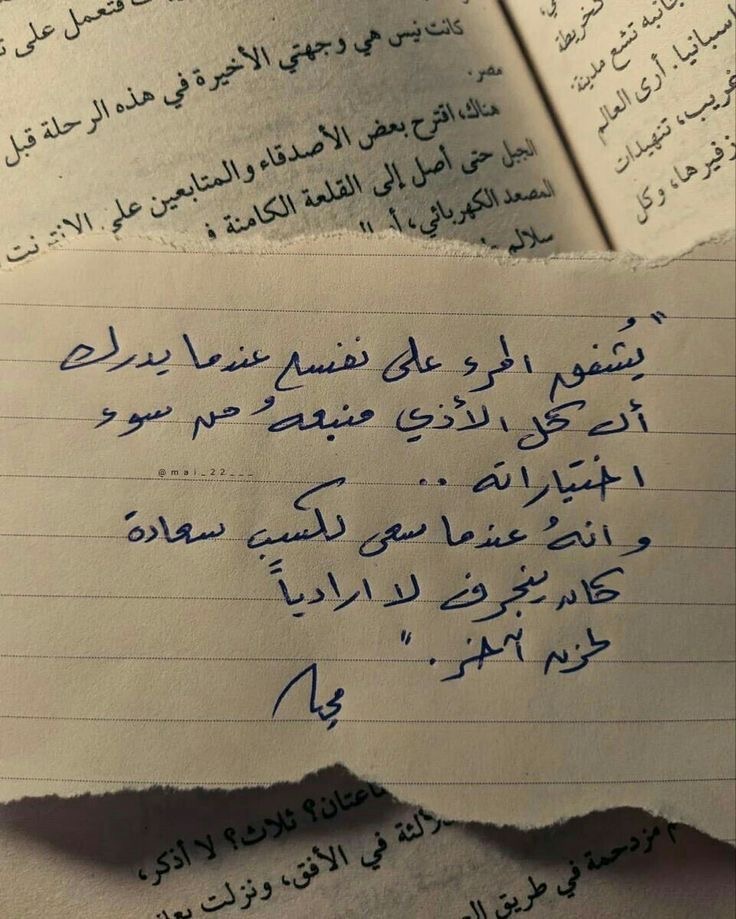 فتعمل على
كانت نيس هي وجهتي الأخيرة في هذه الرحلة قبل
مصر.
هناك، اقترح بعض الأصدقاء والمتابعين على الانترنت
الجبل حتى أصل إلى القلعة الكامنة
المصعد الكهربائي، أو
سلالم
كخريطة
جانبه تشع مدينة
اسبانيا. أرى العالم
غريب، تنهيدات
زفيرها، وكل
"يُشفق المرء على نفسه عندما يدرك
أن كل الأذي منبعهُ من سوء
اختياراته ..
@mai_22___
وانهُ عندما سعى لكسب سعادة
كان ينجرف لا ارادياً
لحزن آخر."
مي
ساعتان؟ ثلاث؟ لا أذكر،
في الأفق، ونزلت
مزدحمة في طريق